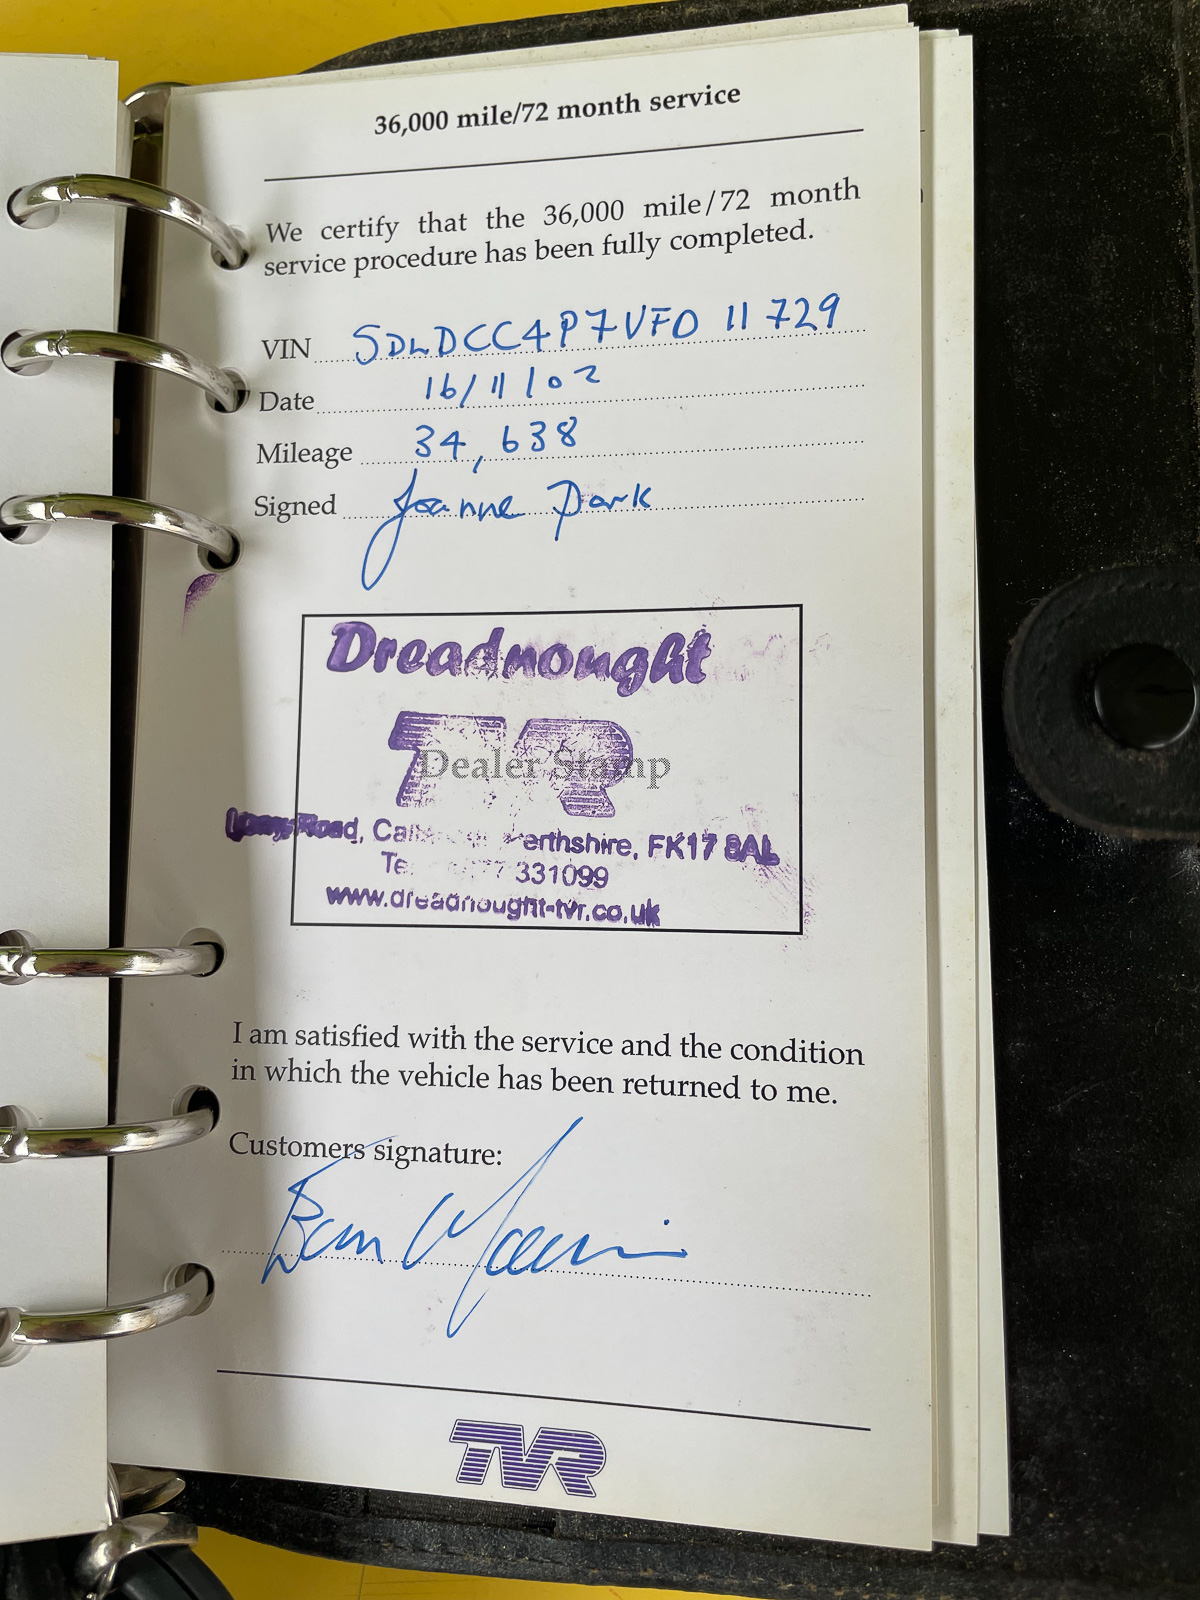 36,000 mile/72 month service
We certify that the 36,000 mile/72 month
service procedure has been fully completed.
VIN SDLDCC4P7VF0 11729
Date 16/11/02
Mileage 34,638
Signed Joanne Park
Dreadnought
TVR
Dealer Stamp
Road, Perthshire, FK17 8AL
331099
www.dreadnought-tvr.co.uk
I am satisfied with the service and the condition
in which the vehicle has been returned to me.
Customers signature:
TVR